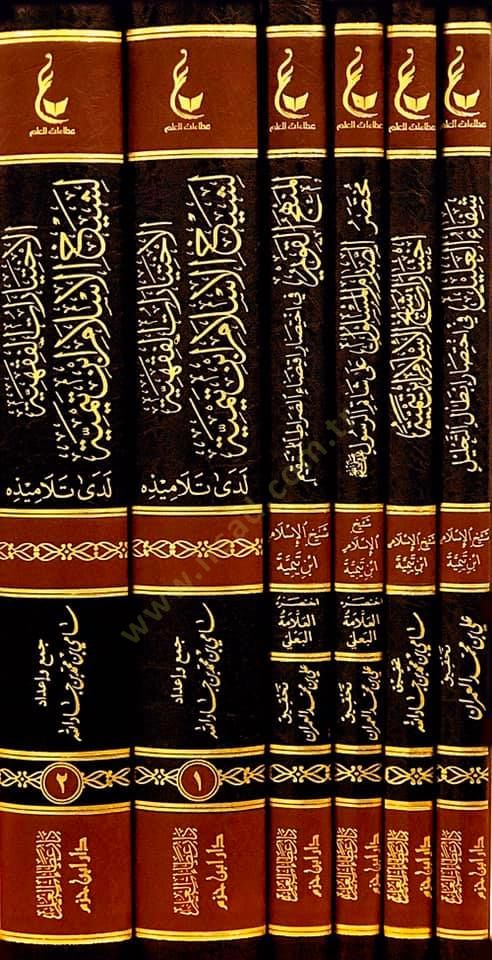 عطاءات العلم
شفاء العليل في اختصار إبطال التحليل
شيخ الإسلام
ابن تيمية
تحقيق
علي بن محمد العمران
دار عطاءات العلم
دار ابن حزم
عطاءات العلم
اختيارات شيخ الإسلام ابن تيمية
شيخ الإسلام
ابن تيمية
تحقيق
سامي بن محمد بن جاد الله
دار عطاءات العلم
دار ابن حزم
عطاءات العلم
مختصر الصارم المسلول على شاتم الرسول ﷺ
شيخ
الإسلام
ابن تيمية
اختصره
العلامة
البعلي
تحقيق
علي بن محمد العمران
دار عطاءات العلم
دار ابن حزم
عطاءات العلم
المنهج القويم في اختصار اقتضاء الصراط المستقيم
شيخ الإسلام
ابن تيمية
اختصره
العلامة
البعلي
تحقيق
علي بن محمد العمران
دار عطاءات العلم
دار ابن حزم
عطاءات العلم
الاختيارات الفقهية
لشيخ الإسلام ابن تيمية
لدى تلاميذه
جمع وإعداد
سامي بن محمد بن جاد الله
١
دار عطاءات العلم
دار ابن حزم
عطاءات العلم
الاختيارات الفقهية
لشيخ الإسلام ابن تيمية
لدى تلاميذه
جمع وإعداد
سامي بن محمد بن جاد الله
٢
دار عطاءات العلم
دار ابن حزم